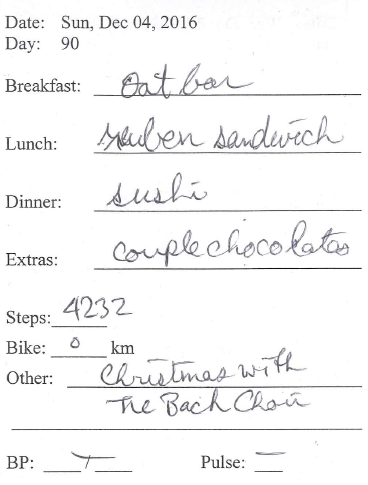 Date: Sun, Dec 04, 2016
Day: 90
Breakfast: Oat bar
Lunch: reuben sandwich
Dinner: sushi
Extras: couple chocolates
Steps: 4232
Bike: 0 km
Other: Christmas with
The Bach Choir
BP: / Pulse: